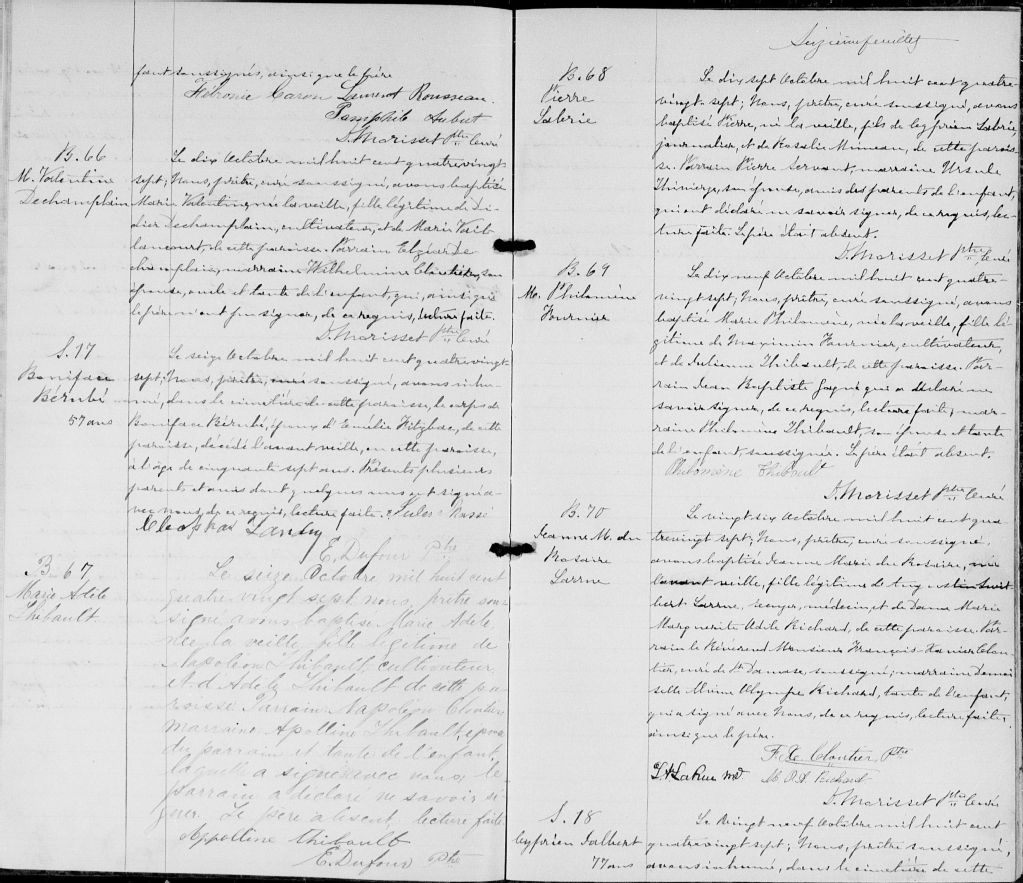 font soussignés, ainsi que le père
Fébronie Caron Laurent Rousseau.
Pamphile Aubut
D. Morisset Ptre Curé
B. 66
M. Valentine
Dechamplain
Le dix Octobre mil huit cent quatrevingt
sept; Nous, prêtre, curé soussigné, avons baptisé
Marie Valentine, née la veille, fille légitime de Di-
dier Dechamplain, cultivateur, et de Marie Vail-
lancourt, de cette paroisse. Parrain Elzéar De
champlain, marraine Wilhelmine Cloutier, son
épouse, oncle et tante de l'enfant, qui, ainsi que
le père n'ont pu signer, de ce requis, lecture faite.
D. Morisset Ptre Curé
S. 17
Boniface
Bérubé
57 ans
Le seize Octobre mil huit cent quatrevingt
sept; Nous, prêtre, curé soussigné, avons inhu-
mé, dans le cimetière de cette paroisse, le corps de
Boniface Bérubé, époux d'Emélie Fitzbac, de cette
paroisse, décédé l'avant veille, en cette paroisse,
à l'âge de cinquante sept ans. Présents plusieurs
parents et amis dont quelques uns ont signé a-
vec nous, de ce requis, lecture faite. Jules Massé
Cleophas Landry
E. Dufour Ptre
B 67
Marie Adèle
Thibault.
Le seize Octobre mil huit cent
quatre vingt sept nous, prêtre sous-
signé avons baptisé Marie Adèle
née la veille fille légitime de
Napoléon Thibault cultivateur
et d'Adèle Thibault de cette pa-
roisse Parrain Napoléon Cloutier
marraine Apolline Thibault, épouse
du parrain et tante de l'enfant,
laquelle a signé avec nous, le
parrain a déclaré ne savoir si-
gner. Le père absent, lecture faite
Appolline Thibault
E. Dufour Ptre
Seizième feuillet
B. 68
Pierre
Labrie
Le dix sept Octobre mil huit cent quatre-
vingt-sept; Nous, prêtre, curé soussigné, avons
baptisé Pierre, né la veille, fils de Cyprien Labrie,
journalier, et de Rosalie Mimeau, de cette parois-
se. Parrain Pierre Servant, marraine Ursule
Thivierge, son épouse, amis des parents de l'enfant,
qui ont déclaré ne savoir signer, de ce requis, lec-
ture faite. Le père était absent.
D. Morisset Ptre Curé
B. 69
M. Philomène
Fournier
Le dix neuf Octobre mil huit cent quatre-
vingt sept; Nous, prêtre, curé soussigné, avons
baptisé Marie Philomène, née la veille, fille lé-
gitime de Maximin Fournier, cultivateur,
et de Julienne Thibault, de cette paroisse. Par-
rain Jean Baptiste Gagné qui a déclaré ne
savoir signer, de ce requis, lecture faite; mar-
raine Philomène Thibault, son épouse et tante
de l'enfant soussignée. Le père était absent.
Philomène Thibault
D. Morisset Ptre Curé
B. 70
Jeanne M. du
Rosaire
Larue
Le vingt six Octobre mil huit cent qua-
trevingt sept; Nous, prêtre, curé soussigné,
avons baptisé Jeanne Marie du Rosaire, née
l'avant veille, fille légitime de
Larue, écuyer, médecin, et de Dame Marie
Marguerite Adèle Richard, de cette paroisse. Par-
rain le Révérend Monsieur François-Xavier Clou-
tier, curé de St Damase, soussigné; marraine Demoi-
selle Olympe Richard, tante de l'enfant,
qui a signé avec Nous, de ce requis, lecture faite,
ainsi que le père.
F. X. Cloutier Ptre
LaRue md. M. P. O. Richard
D. Morisset Ptre Curé
S. 18
Cyprien Jalbert
77 ans
Le vingt neuf Octobre mil huit cent
quatrevingt sept; Nous, prêtre soussigné,
avons inhumé, dans le cimetière de cette